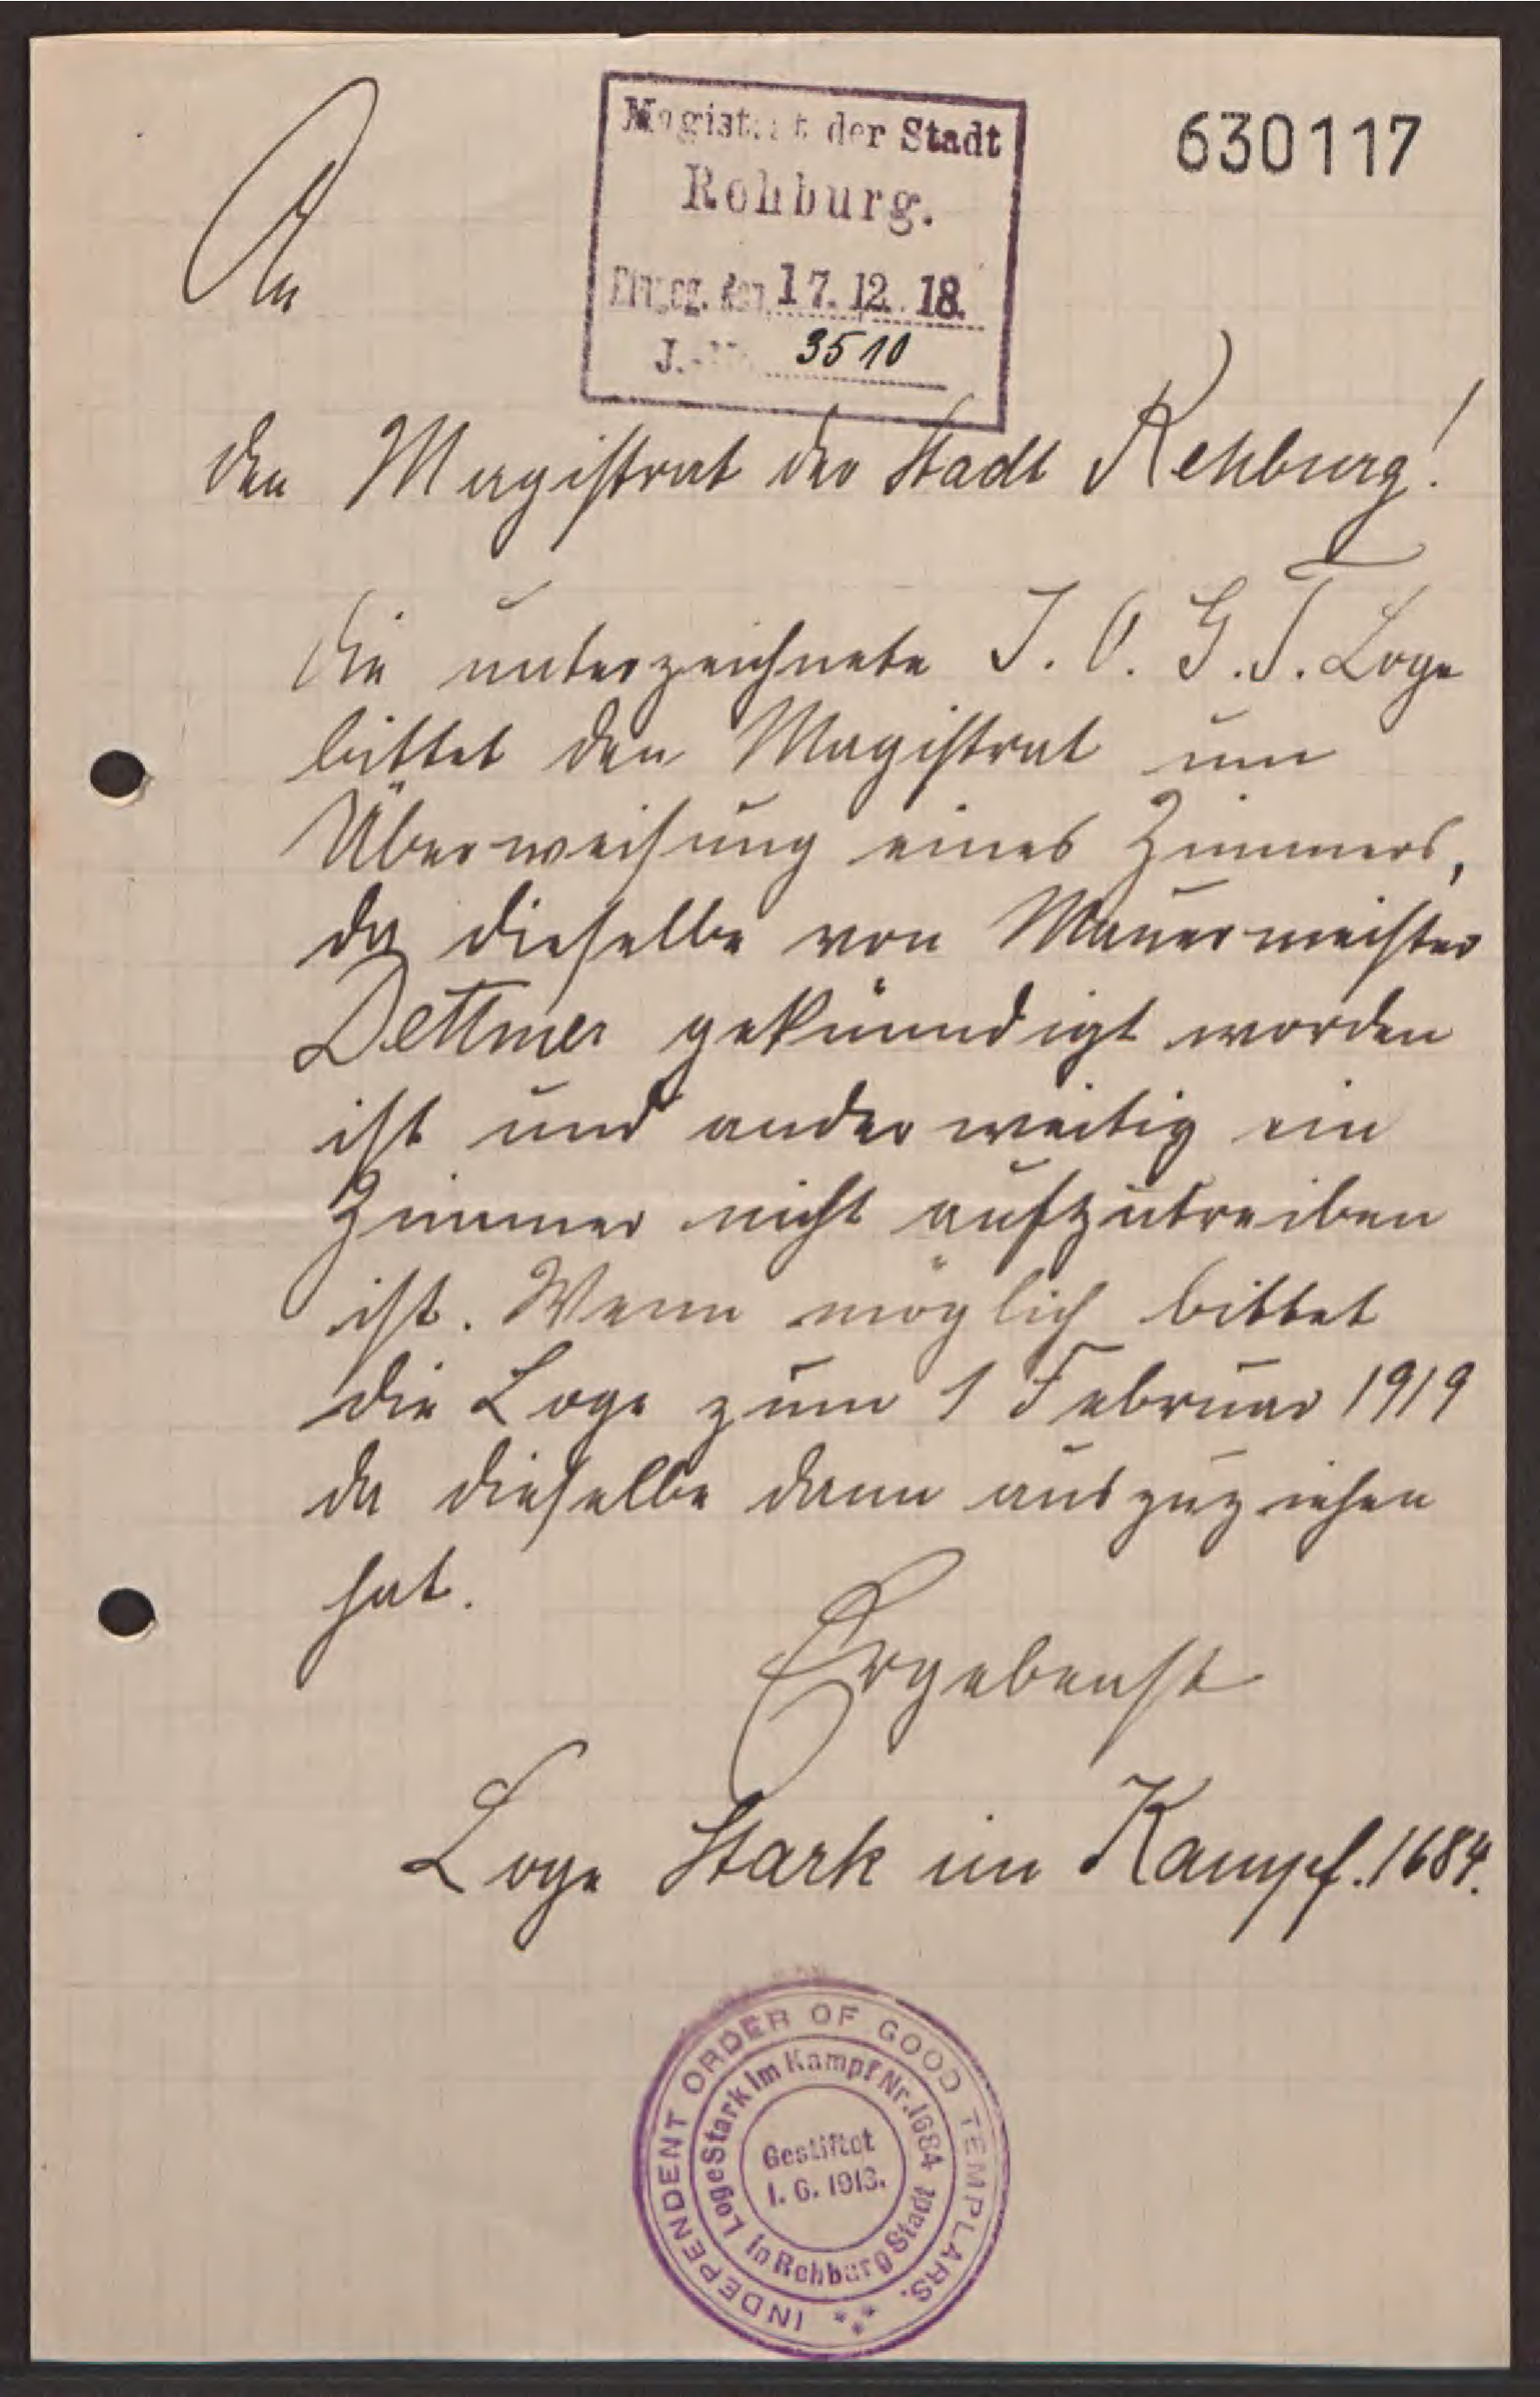 Magistrat der Stadt
Rehburg.
Eingeg. den 17. 12. 18.
J.-Nr. 3510
630117
An
den Magistrat der Stadt Rehburg!
Die unterzeichnete I. O. G. T. Loge
bittet den Magistrat um
Überweisung eines Zimmers,
da dieselbe von Mauermeister
Dettmer gekündigt worden
ist und anderweitig ein
Zimmer nicht aufzutreiben
ist. Wenn möglich bittet
die Loge zum 1 Februar 1919
da dieselbe dann auszuziehen
hat.
Ergebenst
Loge Stark im Kampf. 1684.
INDEPENDENT ORDER OF GOOD TEMPLARS.
Loge Stark im Kampf Nr. 1684
in Rehburg Stadt
Gestiftet
1. 6. 1913.